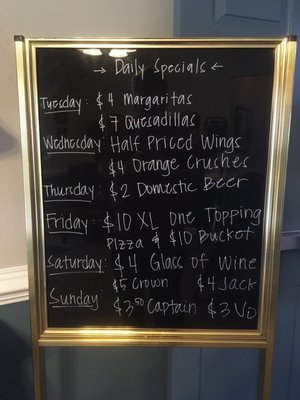 → Daily Specials ←
Tuesday: $4 Margaritas
$7 Quesadillas
Wednesday: Half Priced Wings
$4 Orange Crushes
Thursday: $2 Domestic Beer
Friday: $10 XL One Topping
Pizza & $10 Bucket
Saturday: $4 Glass of Wine
$5 Crown $4 Jack
Sunday: $3.50 Captain $3 VO